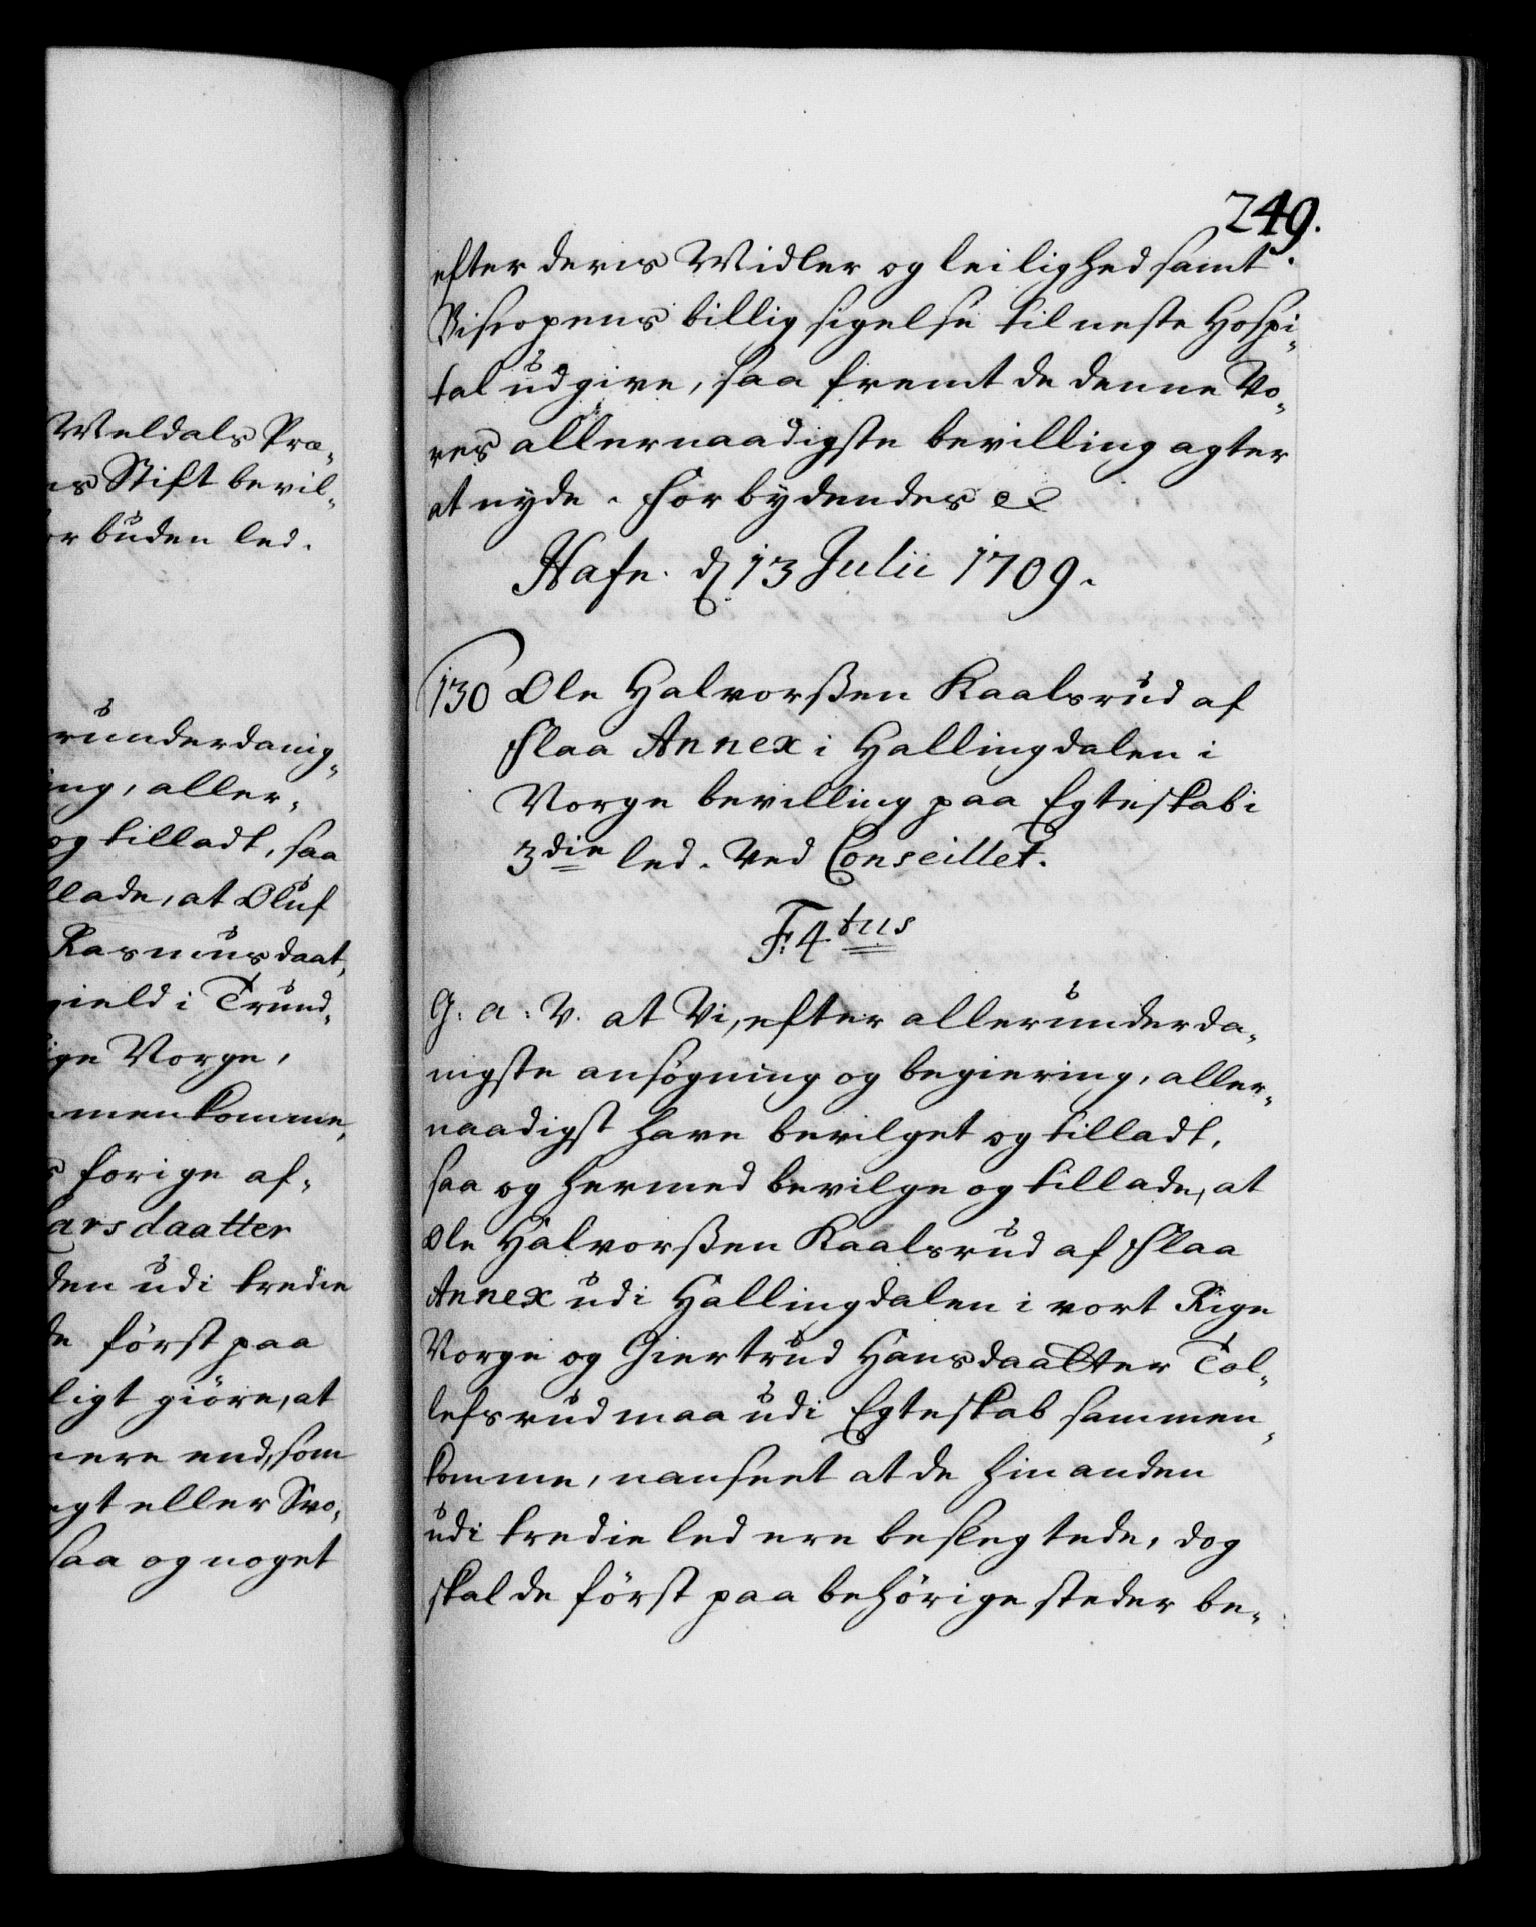 Weldals Præ-
ns Stift bevil-
orbuden led.
runderdanig-
ing, aller-
og tilladt, saa
llade, at Oluf
Rasmusdaat,
gield i Trund-
ige Norge,
menkomme,
s forige af-
arsdaatter
den udi tredie
de först paa
ligt giöre, at
nere end, som
egt eller Svo-
saa og noget
249.
efter deris Midler og leilighed samt
Biscopens billig sigelse til neste Hospi-
tal udgive, saa fremt de denne Vo-
res allernaadigste bevilling agter
at nyde. Forbydendes etc
Hafn. d 13 Julii 1709.
130 Ole Halvorßen Kaalsrud af
Flaa Annex i Hallingdalen i
Norge bevilling paa Egteskab i
3die led. Ved Conseillet.
F. 4tus
G. a: V. at Vi, efter allerunderda-
nigste ansögning og begiering, aller-
naadigst have bevilget og tilladt,
saa og hermed bevilge og tillade, at
Ole Halvorßen Kaalsrud af Flaa
Annex udi Hallingdalen i vort Rige
Norge og Giertrud Hansdaatter Tol-
lefsrud maa udi Egteskab sammen-
komme, uanseet at de hinanden
udi tredie led ere beslegtede, dog
skal de först paa behörige steder be-